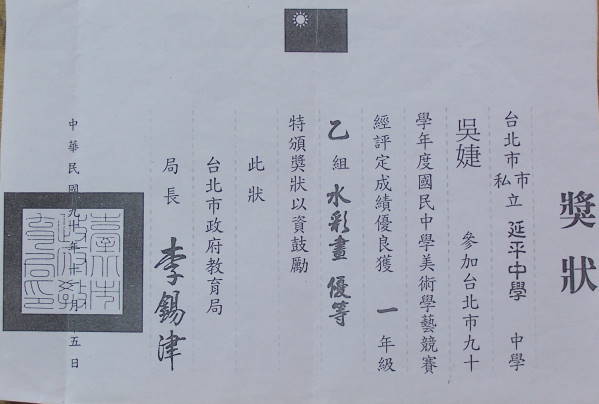 獎狀
台北市市私立延平中學中學
吳婕參加台北市九十
學年度國民中學美術學藝競賽
經評定成績優良獲一年級
乙組水彩畫優等
特頒獎狀以資鼓勵
此狀
台北市政府教育局
局長李錫津
中華民國九十年十月五日